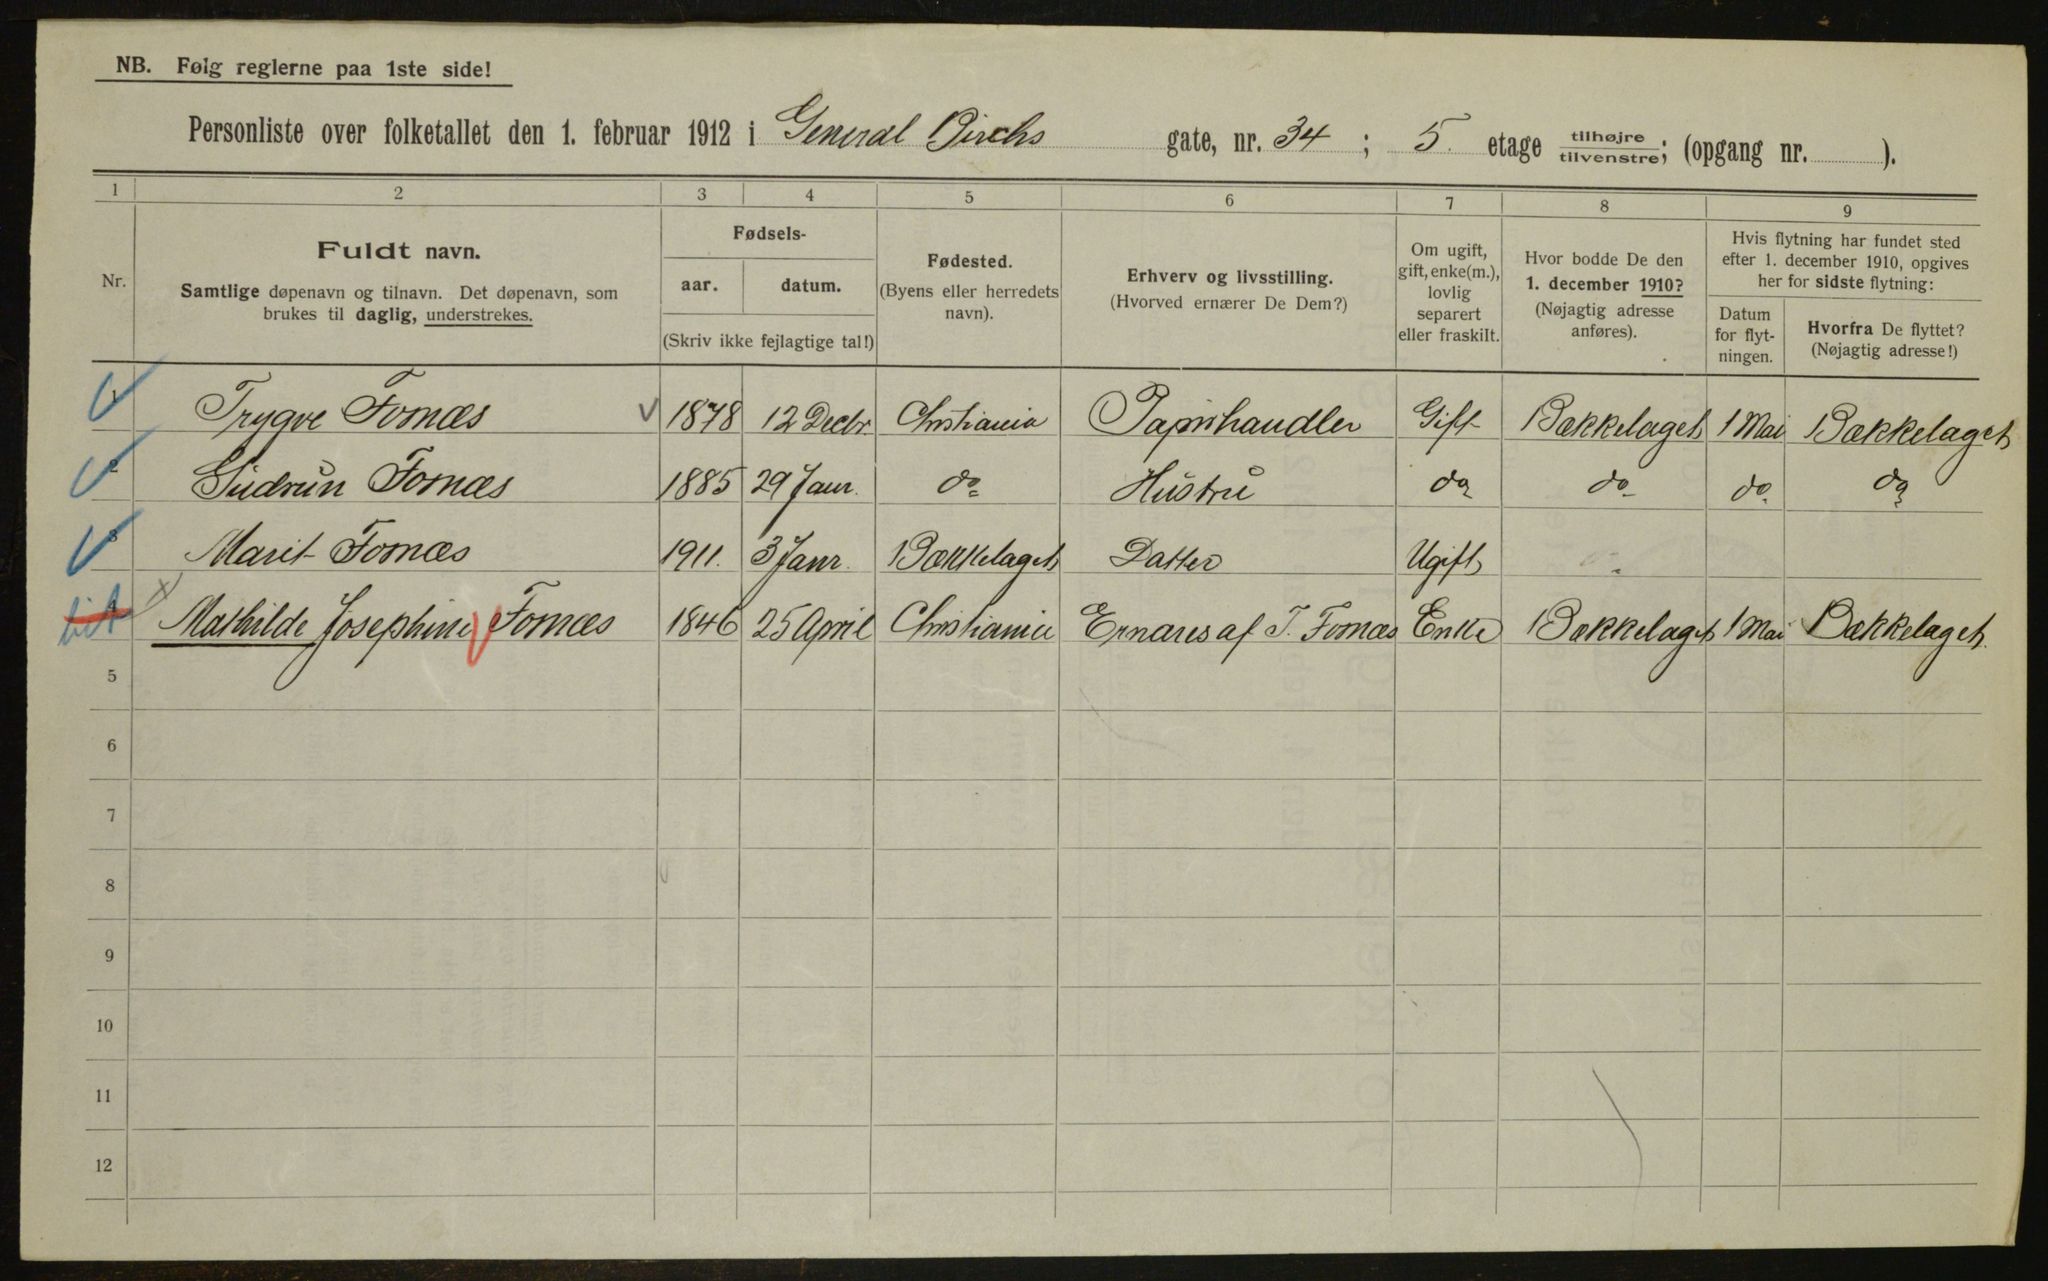 NB. Følg reglerne paa 1ste side!
Personliste over folketallet den 1. februar 1912 i General Birchs gate, nr. 34 ; 5. etage tilhøjre/tilvenstre; (opgang nr. ).
1 2 3 4 5 6 7 8 9
Nr.
Fuldt navn.
Samtlige døpenavn og tilnavn. Det døpenavn, som
brukes til daglig, understrekes.
Fødsels-
aar. datum.
(Skriv ikke fejlagtige tal!)
Fødested.
(Byens eller herredets
navn).
Erhverv og livsstilling.
(Hvorved ernærer De Dem?)
Om ugift,
gift, enke(m.),
lovlig
separert
eller fraskilt.
Hvor bodde De den
1. december 1910?
(Nøjagtig adresse
anføres).
Hvis flytning har fundet sted
efter 1. december 1910, opgives
her for sidste flytning:
Datum
for flyt-
ningen.
Hvorfra De flyttet?
(Nøjagtig adresse!)
1 Trygve Fornæs 1878 12 Decbr. Christiania Papirhandler Gift Bækkelaget 1 Mai Bækkelaget
2 Gudrun Fornæs 1885 29 Janr. do Hustru do do do do
3 Marit Fornæs 1911. 3 Janr. Bækkelaget Datter Ugift
4 Mathilde Josephine Fornæs 1846 25 April Christiania Ernæres af T. Fornæs Enke Bækkelaget 1 Mai Bækkelaget.
5
6
7
8
9
10
11
12